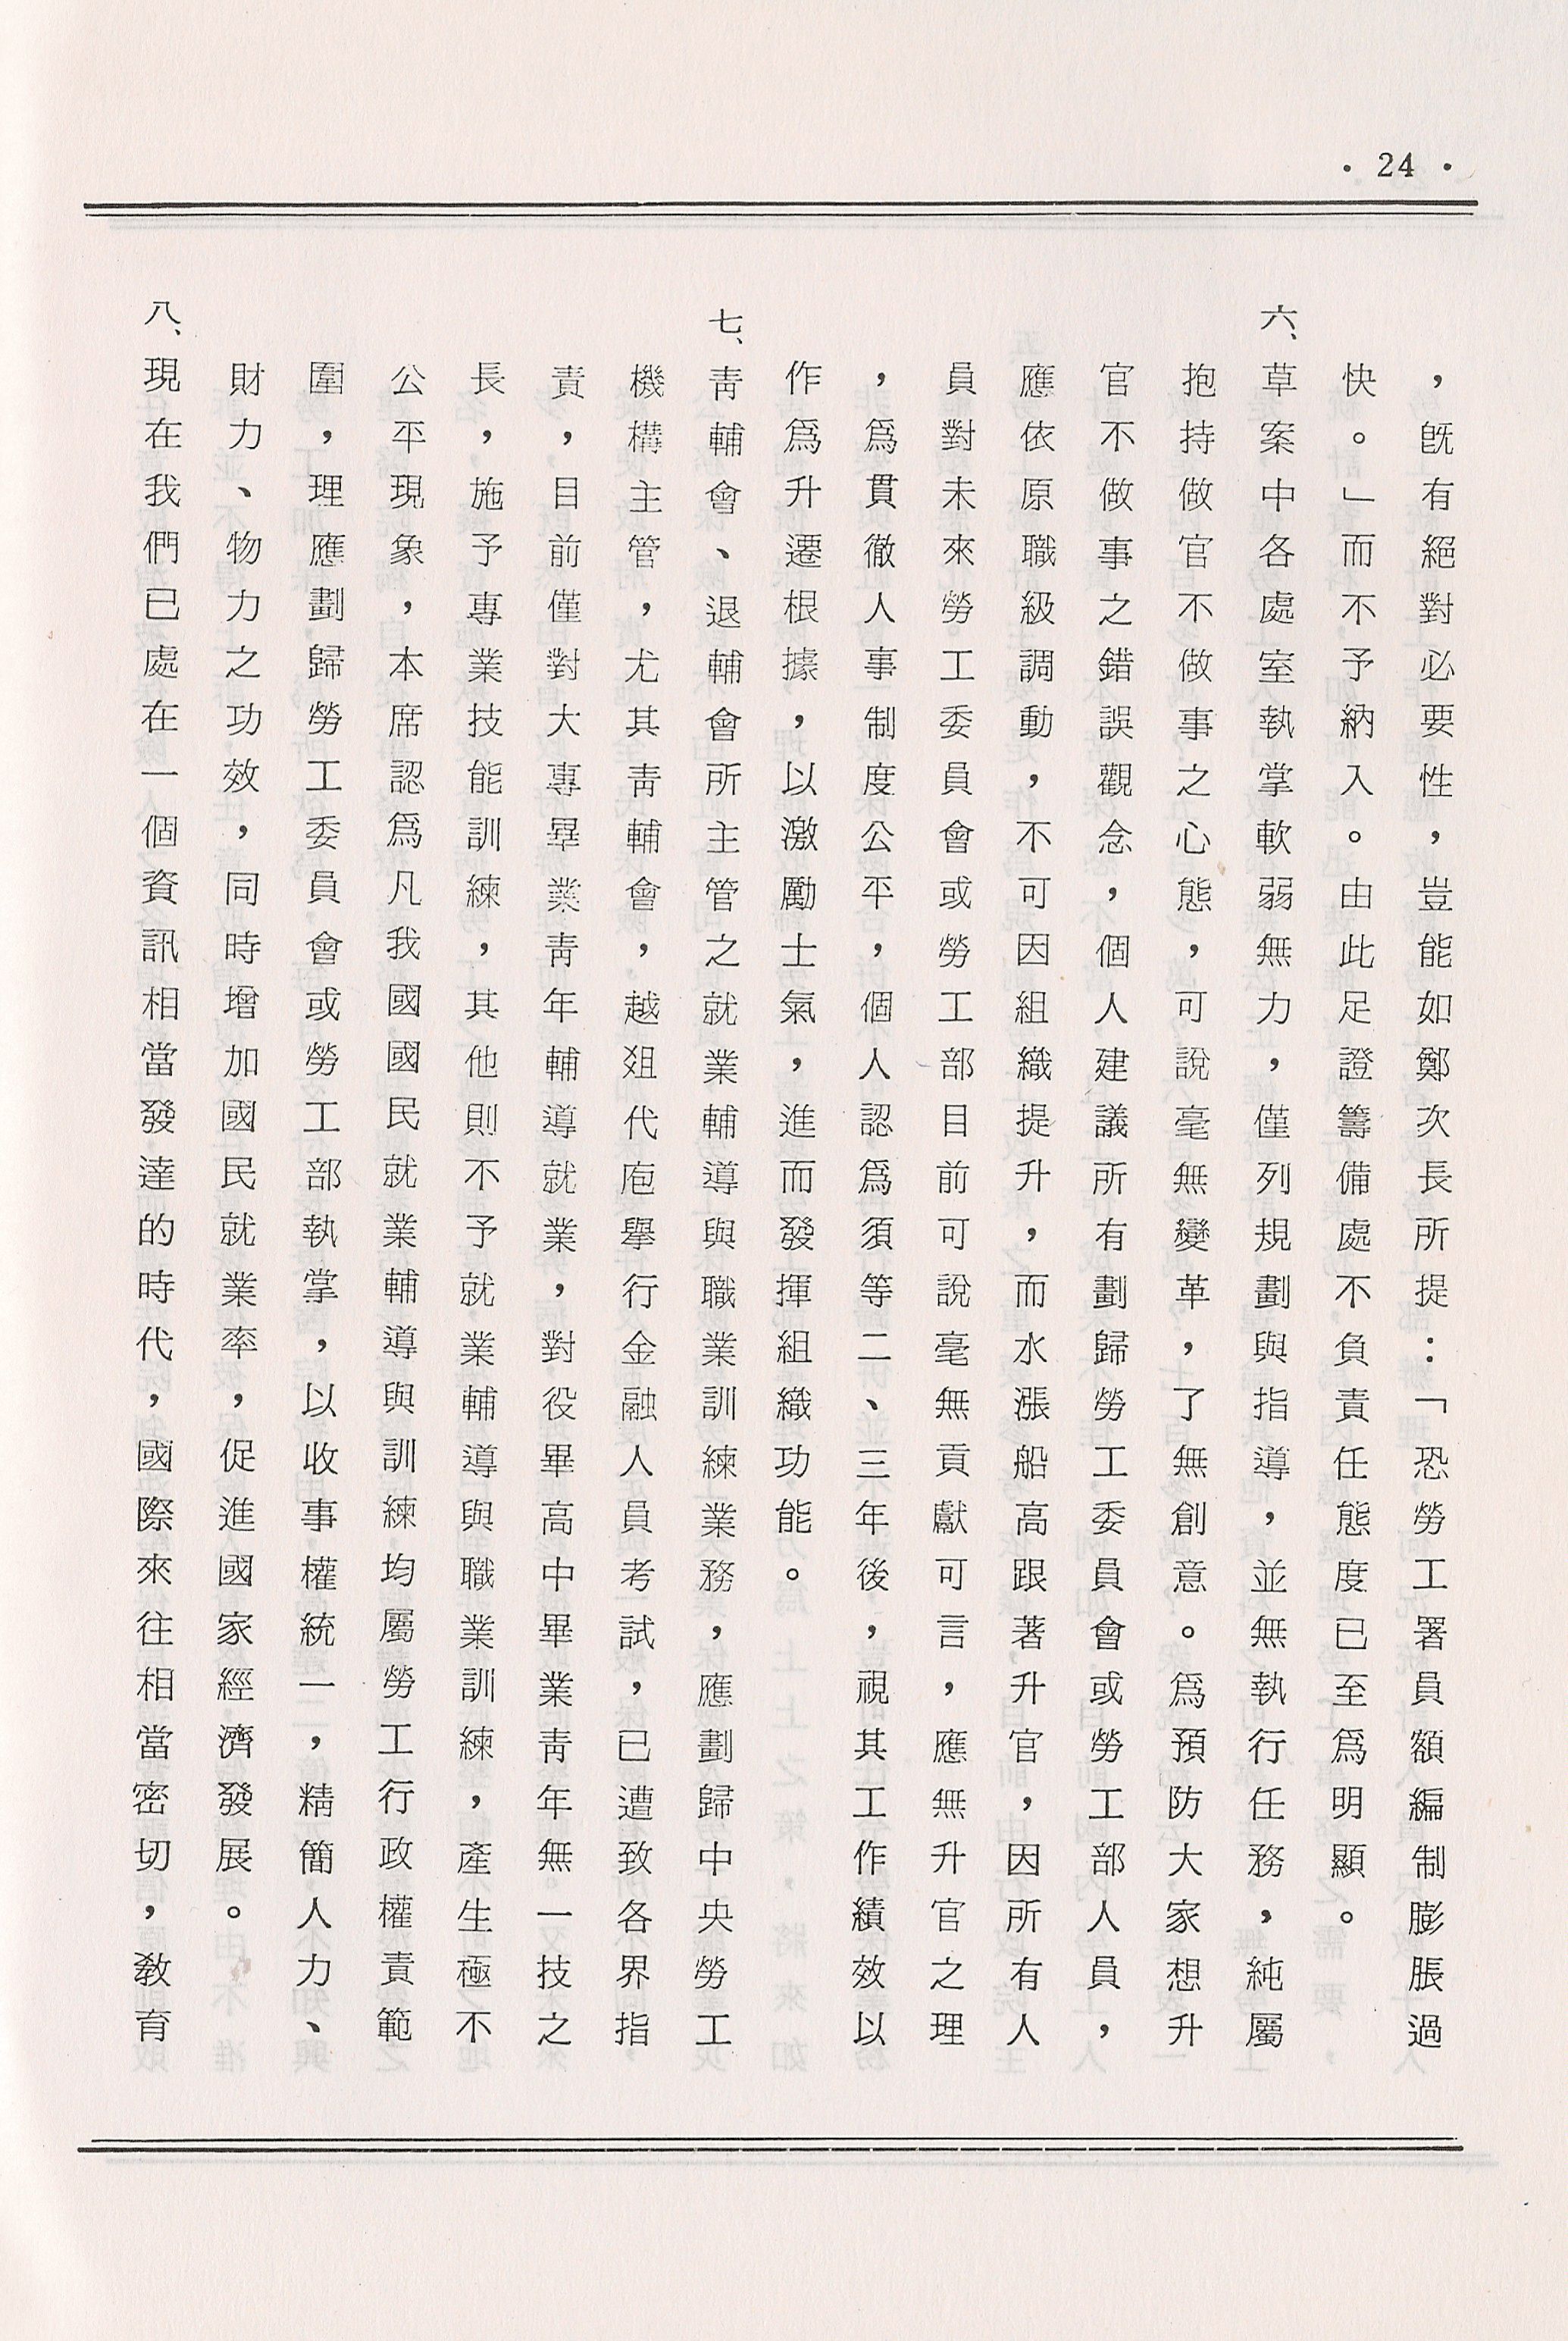 · 24 ·
，既有絕對必要性，豈能如鄭次長所提：「恐勞工署員額編制膨脹過
快。」而不予納入。由此足證籌備處不負責任態度已至爲明顯。
六、草案中各處室執掌軟弱無力，僅列規劃與指導，並無執行任務，純屬
抱持做官不做事之心態，可說毫無變革，了無創意。爲預防大家想升
官不做事之錯誤觀念，個人建議所有劃歸勞工委員會或勞工部人員，
應依原職級調動，不可因組織提升，而水漲船高跟著升官，因所有人
員對未來勞工委員會或勞工部目前可說毫無貢獻可言，應無升官之理
，爲貫徹人事制度公平，個人認爲須等二、三年後，視其工作績效以
作爲升遷根據，以激勵士氣，進而發揮組織功能。
七、靑輔會、退輔會所主管之就業輔導與職業訓練業務，應劃歸中央勞工
機構主管，尤其靑輔會，越爼代庖舉行金融人員考試，已遭致各界指
責，目前僅對大專畢業靑年輔導就業，對役畢高中畢業靑年無一技之
長，施予專業技能訓練，其他則不予就業輔導與職業訓練，產生極不
公平現象，本席認爲凡我國國民就業輔導與訓練均屬勞工行政權責範
圍，理應劃歸勞工委員會或勞工部執掌，以收事權統一，精簡人力、
財力、物力之功效，同時增加國民就業率，促進國家經濟發展。
八、現在我們已處在一個資訊相當發達的時代，國際來往相當密切，敎育